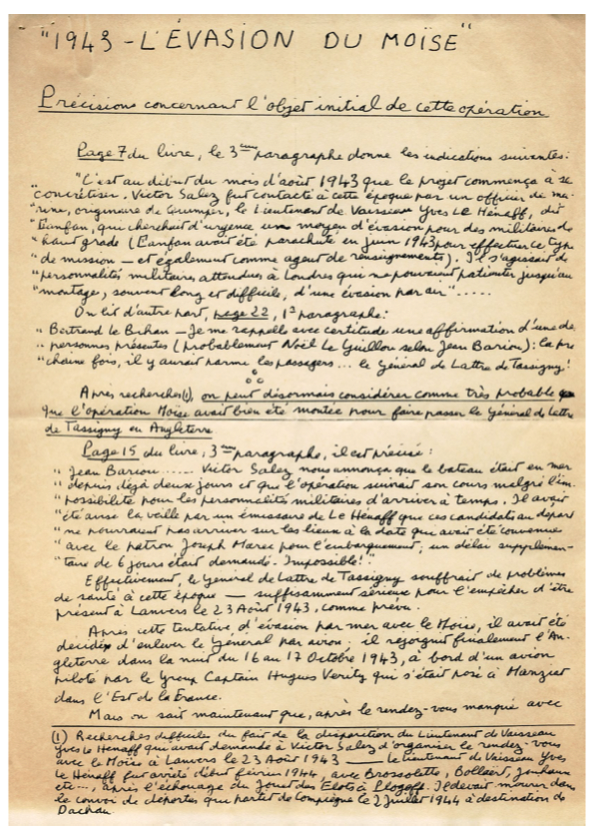 "1943 - L'ÉVASION DU MOÏSE"
Précisions concernant l'objet initial de cette opération
Page 7 du livre, le 3ème paragraphe donne les indications suivantes:
"C'est au début du mois d'août 1943 que le projet commença à se
"concrétiser. Victor Salez fut contacté à cette époque par un officier de ma-
"rine, originaire de Quimper, le Lieutenant de Vaisseau Yves Le Hénaff, dit
"Fanfan, qui cherchait d'urgence un moyen d'évasion pour des militaires de
"haut grade (Fanfan avait été parachuté en juin 1943 pour effectuer ce type
"de mission - et également comme agent de renseignements). Il s'agissait de
"personnalités militaires attendues à Londres qui ne pouvaient patienter jusqu'au
"montage, souvent long et difficile, d'une évasion par air".....
On lit d'autre part, page 22, 1er paragraphe:
"Bertrand Le Bihan - Je me rappelle avec certitude une affirmation d'une de
"personnes présentes (probablement Noël Le Guillou selon Jean Bariou): la pro
"chaine fois, il y aurait parmi les passagers... le Général de Lattre de Tassigny!
Après recherches(1), on peut désormais considérer comme très probable que
que l'opération Moïse avait bien été montée pour faire passer le Général de Lattre
de Tassigny en Angleterre
Page 15 du livre, 3ème paragraphe, il est précisé:
"Jean Bariou...... Victor Salez nous annonça que le bateau était en mer
"depuis déjà deux jours et que l'opération suivait son cours malgré l'im-
"possibilité pour les personnalités militaires d'arriver à temps. Il avait
"été avisé la veille par un émissaire de Le Hénaff que ces candidats au départ
"ne pourraient pas arriver sur les lieux à la date qui avait été convenue
"avec le patron Joseph Marec pour l'embarquement; un délai supplémen-
"taire de 6 jours était demandé. Impossible!"
Effectivement, le Général de Lattre de Tassigny souffrait de problèmes
de santé à cette époque - suffisamment sérieux pour l'empêcher d'être
présent à Lanvers le 23 Août 1943, comme prévu.
Après cette tentative d'évasion par mer avec le Moïse, il avait été
décidé d'enlever le Général par avion. il rejoignit finalement l'An-
gleterre dans la nuit du 16 au 17 Octobre 1943, à bord d'un avion
piloté par le Group Captain Hugues Verity qui s'était posé à Manziat
dans l'Est de la France.
Mais on sait maintenant que, après le rendez-vous manqué avec
(1) Recherches difficiles du fait de la disparition du Lieutenant de Vaisseau
Yves Le Hénaff qui avait demandé à Victor Salez d'organiser le rendez-vous
avec le Moïse à Lanvers le 23 Août 1943 - Le Lieutenant de Vaisseau Yves
Le Hénaff fut arrêté début février 1944, avec Brossolette, Bollaert, Jouhaux
etc..., après l'échouage du Jouet des Flots à Plogoff. Il devait mourir dans
le convoi de déportés qui partit de Compiègne le 2 Juillet 1944 à destination de
Dachau